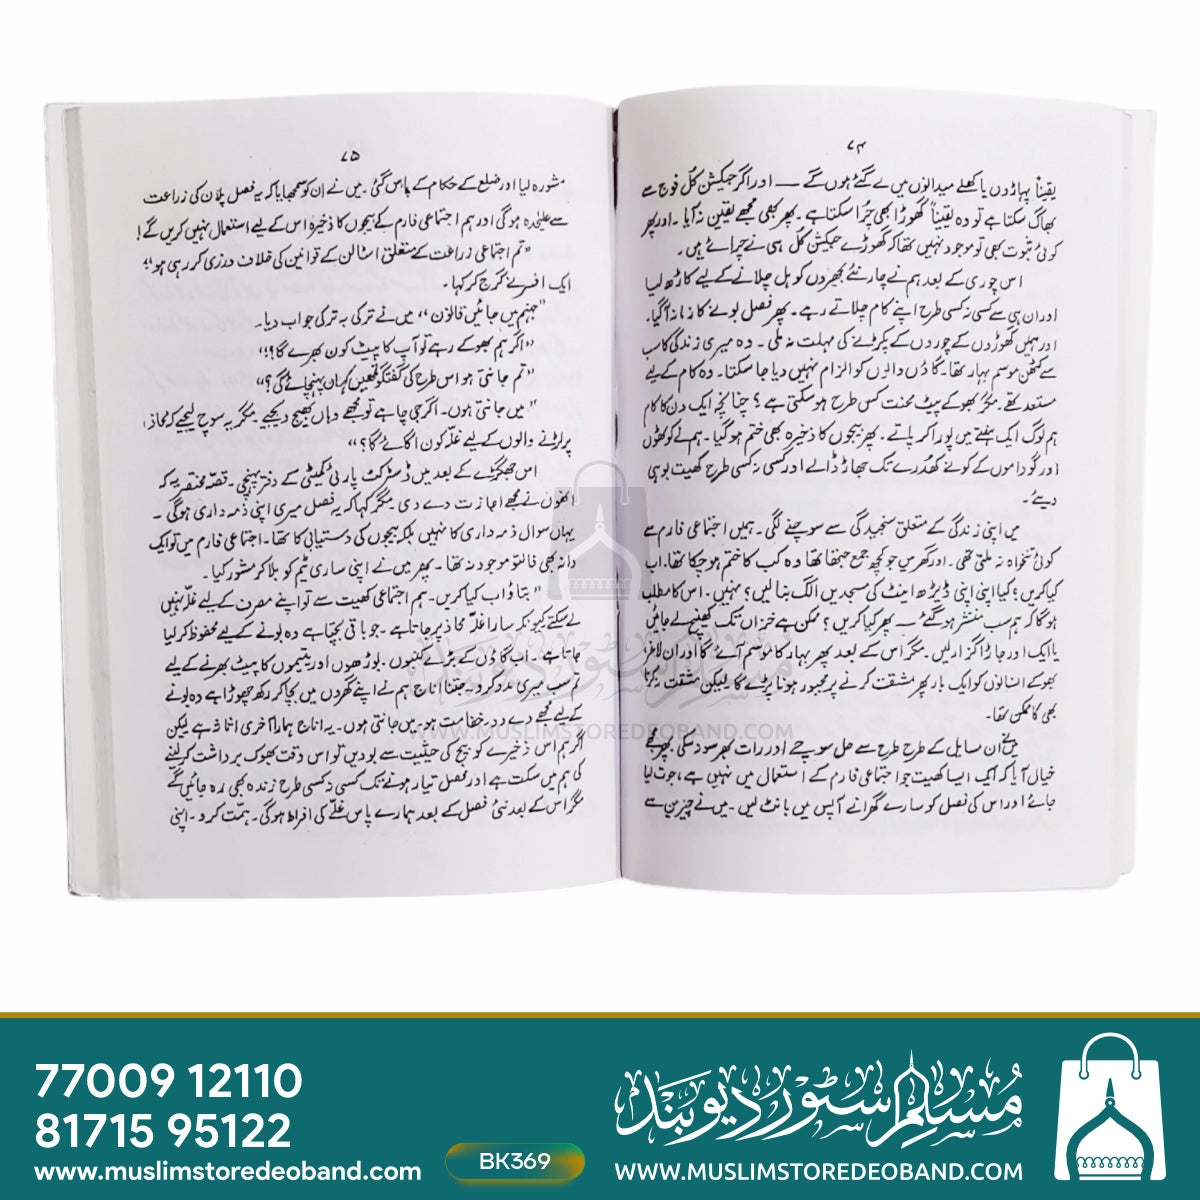 ۷۴
یقیناً پہاڑوں یا کھلے میدانوں میں لے گئے ہوں گے — اور اگر جیکشن کل فوج سے
بھاگ سکتا ہے تو وہ یقیناً گھوڑا بھی چرا سکتا ہے۔ پھر کبھی مجھے یقین نہ آیا۔ اور پھر
کوئی ثبوت بھی تو موجود نہیں تھا کہ گھوڑے جیکشن کل ہی نے چرائے ہیں۔
اس چوری کے بعد ہم نے چار نئے بچھڑوں کو ہل چلانے کے لیے کاڑھ لیا
اور ان ہی سے کسی نہ کسی طرح اپنے کام چلاتے رہے۔ پھر فصل بونے کا زمانہ آ گیا۔
اور ہمیں گھوڑوں کے چوروں کے پکڑنے کی مہلت نہ ملی۔ وہ میری زندگی کا سب
سے کٹھن موسم بہار تھا۔ گاؤں والوں کو الزام نہیں دیا جا سکتا۔ وہ کام کے لیے
مستعد تھے۔ مگر بھوکے پیٹ محنت کس طرح ہو سکتی ہے؟ چنانچہ ایک دن کا کام
ہم لوگ ایک ہفتے میں پورا کر پاتے۔ پھر بیجوں کا ذخیرہ بھی ختم ہو گیا۔ ہم نے کوٹھوں
اور گوداموں کے کونے کھدرے تک جھاڑ ڈالے اور کسی نہ کسی طرح کھیت بو ہی
دیئے۔
میں اپنی زندگی کے متعلق سنجیدگی سے سوچنے لگی۔ ہمیں اجتماعی فارم سے
کوئی تنخواہ نہ ملتی تھی۔ اور گھر میں جو کچھ جمع جتھا تھا وہ کب کا ختم ہو چکا تھا۔ اب
کیا کریں؟ کیا اپنی اپنی ڈیڑھ اینٹ کی مسجدیں الگ بنا لیں؟ نہیں۔ اس کا مطلب
ہوگا کہ ہم سب منتشر ہو گئے — پھر کیا کریں؟ ممکن ہے خزاں تک کھینچ لے جائیں
یا ایک اور جاڑا گزار لیں۔ مگر اس کے بعد پھر بہار کا موسم آئے گا اور ان لاغر
بھوکے انسانوں کو ایک بار پھر مشقت کرنے پر مجبور ہونا پڑے گا لیکن مشقت نہ کرنا
بھی ناممکن تھا۔
میں نے ان مسایل کے طرح طرح سے حل سوچے اور رات بھر سو نہ سکی۔ پھر مجھے
خیال آیا کہ ایک ایسا کھیت جو اجتماعی فارم کے استعمال میں نہیں ہے، جوت لیا
جائے اور اس کی فصل کو سارے گھرانے آپس میں بانٹ لیں۔ میں نے چیئرمین سے
۷۵
مشورہ لیا اور ضلع کے حکام کے پاس گئی۔ میں نے ان کو سمجھایا کہ یہ فصل پلان کی زراعت
سے علیحدہ ہوگی اور ہم اجتماعی فارم کے بیجوں کا ذخیرہ اس کے لیے استعمال نہیں کریں گے!
"تم اجتماعی زراعت کے متعلق اسٹالن کے قوانین کی خلاف ورزی کر رہی ہو"
ایک افسر نے گرج کر کہا۔
"جہنم میں جائیں قانون" میں نے ترکی بہ ترکی جواب دیا۔
"اگر ہم بھوکے رہے تو آپ کا پیٹ کون بھرے گا؟!"
"تم جانتی ہو اس طرح کی گفتگو تمھیں کہاں پہنچائے گی؟"
"میں جانتی ہوں۔ اگر جی چاہے تو مجھے وہاں بھیج دیجیے۔ مگر یہ سوچ لیجیے کہ محاذ
پر لڑنے والوں کے لیے غلّہ کون اگائے گا؟"
اس جھگڑے کے بعد میں ڈسٹرکٹ پارٹی کمیٹی کے دفتر پہنچی۔ قصّہ مختصر یہ کہ
انھوں نے مجھے اجازت دے دی۔ مگر کہا کہ یہ فصل میری اپنی ذمہ داری ہوگی۔
یہاں سوال ذمہ داری کا نہیں بلکہ بیجوں کی دستیابی کا تھا۔ اجتماعی فارم میں تو ایک
دانہ بھی فالتو موجود نہ تھا۔ پھر میں نے اپنی ساری ٹیم کو بلا کر مشورہ کیا۔
"بتاؤ اب کیا کریں۔ ہم اجتماعی کھیت سے تو اپنے مصرف کے لیے غلّہ نہیں
لے سکتے کیونکہ سارا غلّہ محاذ پر جاتا ہے۔ جو باقی بچتا ہے وہ بونے کے لیے محفوظ کر لیا
جاتا ہے۔ اب گاؤں کے بڑے کنبوں۔ بوڑھوں اور یتیموں کا پیٹ بھرنے کے لیے
تم سب میری مدد کرو۔ جتنا اناج ہم نے اپنے گھروں میں بچا کر رکھ چھوڑا ہے وہ بونے
کے لیے مجھے دے دو۔ خفا مت ہو۔ میں جانتی ہوں۔ یہ اناج ہمارا آخری اثاثہ ہے لیکن
اگر ہم اس ذخیرے کو بیج کی حیثیت سے بو دیں تو اس وقت بھوک برداشت کر لینے
کی ہم میں سکت ہے اور فصل تیار ہونے تک کسی نہ کسی طرح زندہ بھی رہ جائیں گے
مگر اس کے بعد نئی فصل کے بعد ہمارے پاس غلّے کی افراط ہوگی۔ ہمّت کرو۔ اپنی
مسلم سٹور دیوبند
WWW.MUSLIMSTOREDEOBAND.COM
77009 12110
81715 95122
www.muslimstoredeoband.com
BK369
مسلم سٹور دیوبند
WWW.MUSLIMSTOREDEOBAND.COM